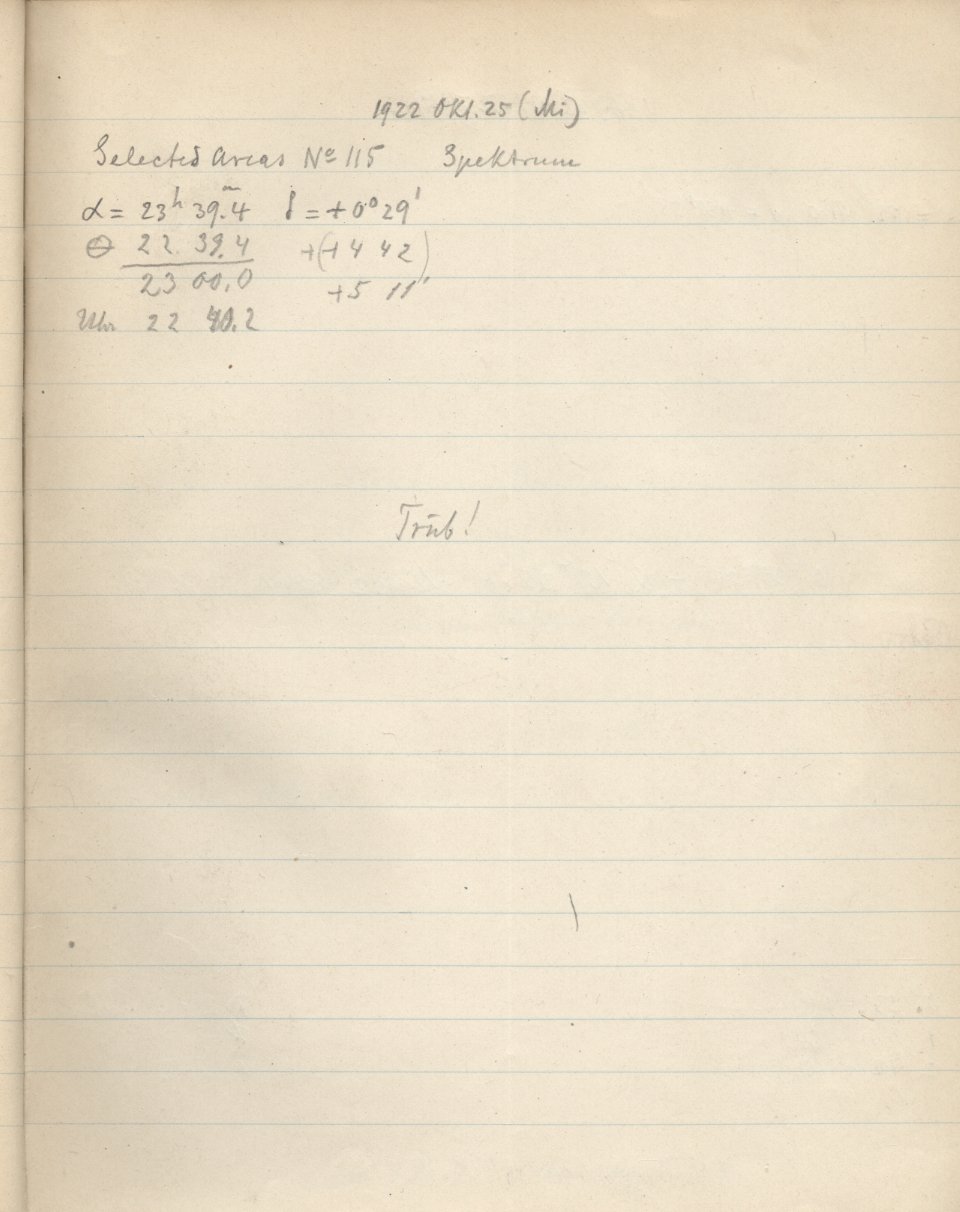 1922 Okt. 25 (Mi)
Selected Areas Nº 115 Spektrum
α = 23ʰ 39.4ᵐ δ = +0° 29'
⊖ 22 39.4 +(+4 42)
23 00.0 +5 11'
Uhr 22 40.2
Trüb!